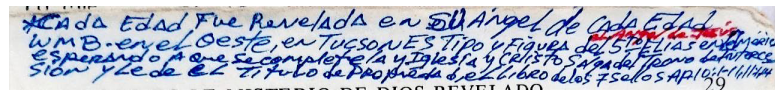 *Cada Edad Fue Revelada en SU Angel de Cada Edad
WMB. en el Oeste, en Tucson ES Tipo y Figura del 5to ELIAS en
esperando A que se complete la y Iglesia y Cristo Salga del Trono de Interce
sión y le de el Titulo de Propiedad, el Libro de los 7 sellos AP.10:1-11
MISTERIO DE DIOS REVELADO 29